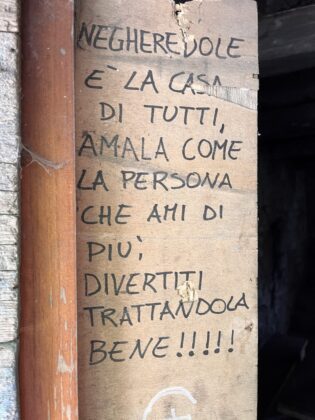 NEGHEREDOLE
E` LA CASA
DI TUTTI,
AMALA COME
LA PERSONA
CHE AMI DI
PIU`,
DIVERTITI
TRATTANDOLA
BENE!!!!!